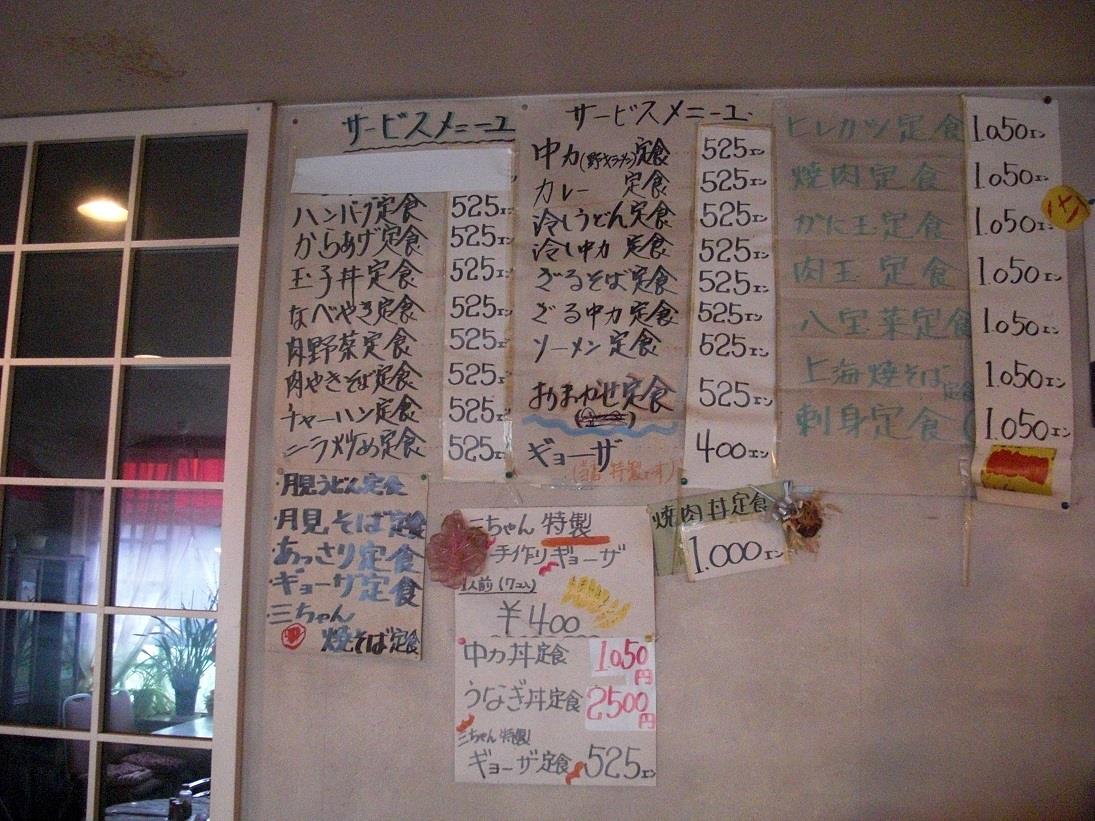 サービスメニュー
ハンバグ定食 525エン
からあげ定食 525エン
玉子丼定食 525エン
なべやき定食 525エン
肉野菜定食 525エン
肉やきそば定食 525エン
チャーハン定食 525エン
ニラ炒め定食 525エン
サービスメニュー
中カ(野サイラーメン)定食 525エン
カレー 定食 525エン
冷しうどん定食 525エン
冷し中カ 定食 525エン
ざるそば定食 525エン
ざる中カ定食 525エン
ソーメン定食 525エン
おまかせ定食 525エン
ギョーザ 400エン
(当店特製です)
ヒレカツ定食 1.050エン
焼肉定食 1.050エン
かに玉定食 1.050エン
肉玉定食 1.050エン
八宝菜定食 1.050エン
上海焼そば定食 1.050エン
刺身定食 1.050エン
・月見うどん定食
・月見そば定食
・あっさり定食
・ギョーザ定食
・三ちゃん
焼そば定食
三ちゃん特製
手作りギョーザ
1人前(7コ入)
¥400
焼肉丼定食
1.000エン
中カ丼定食 1.050円
うなぎ丼定食 2500円
三ちゃん特製
ギョーザ定食 525エン